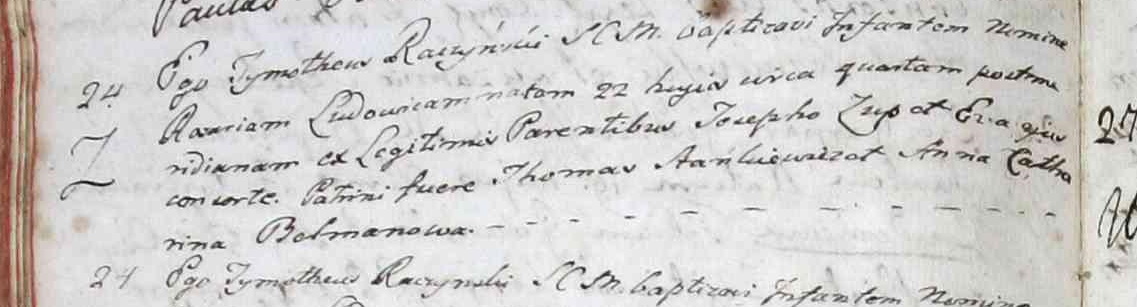 Paulus
24 Ego Tymotheus Raczyński SCM. baptizavi Infantem Nomine
Z Mariam Ludovicam natam 22 hujus circa quartam postme
ridianam ex Legitimis Parentibus Josepho Zup et Eva ejus
consorte. Patrini fuere Thomas Stankiewicz et Anna Catha
rina Belmanowa. - - - - - - - - - - -
24 Ego Tymotheus Raczynski SCM. baptizavi Infantem Nomine
27